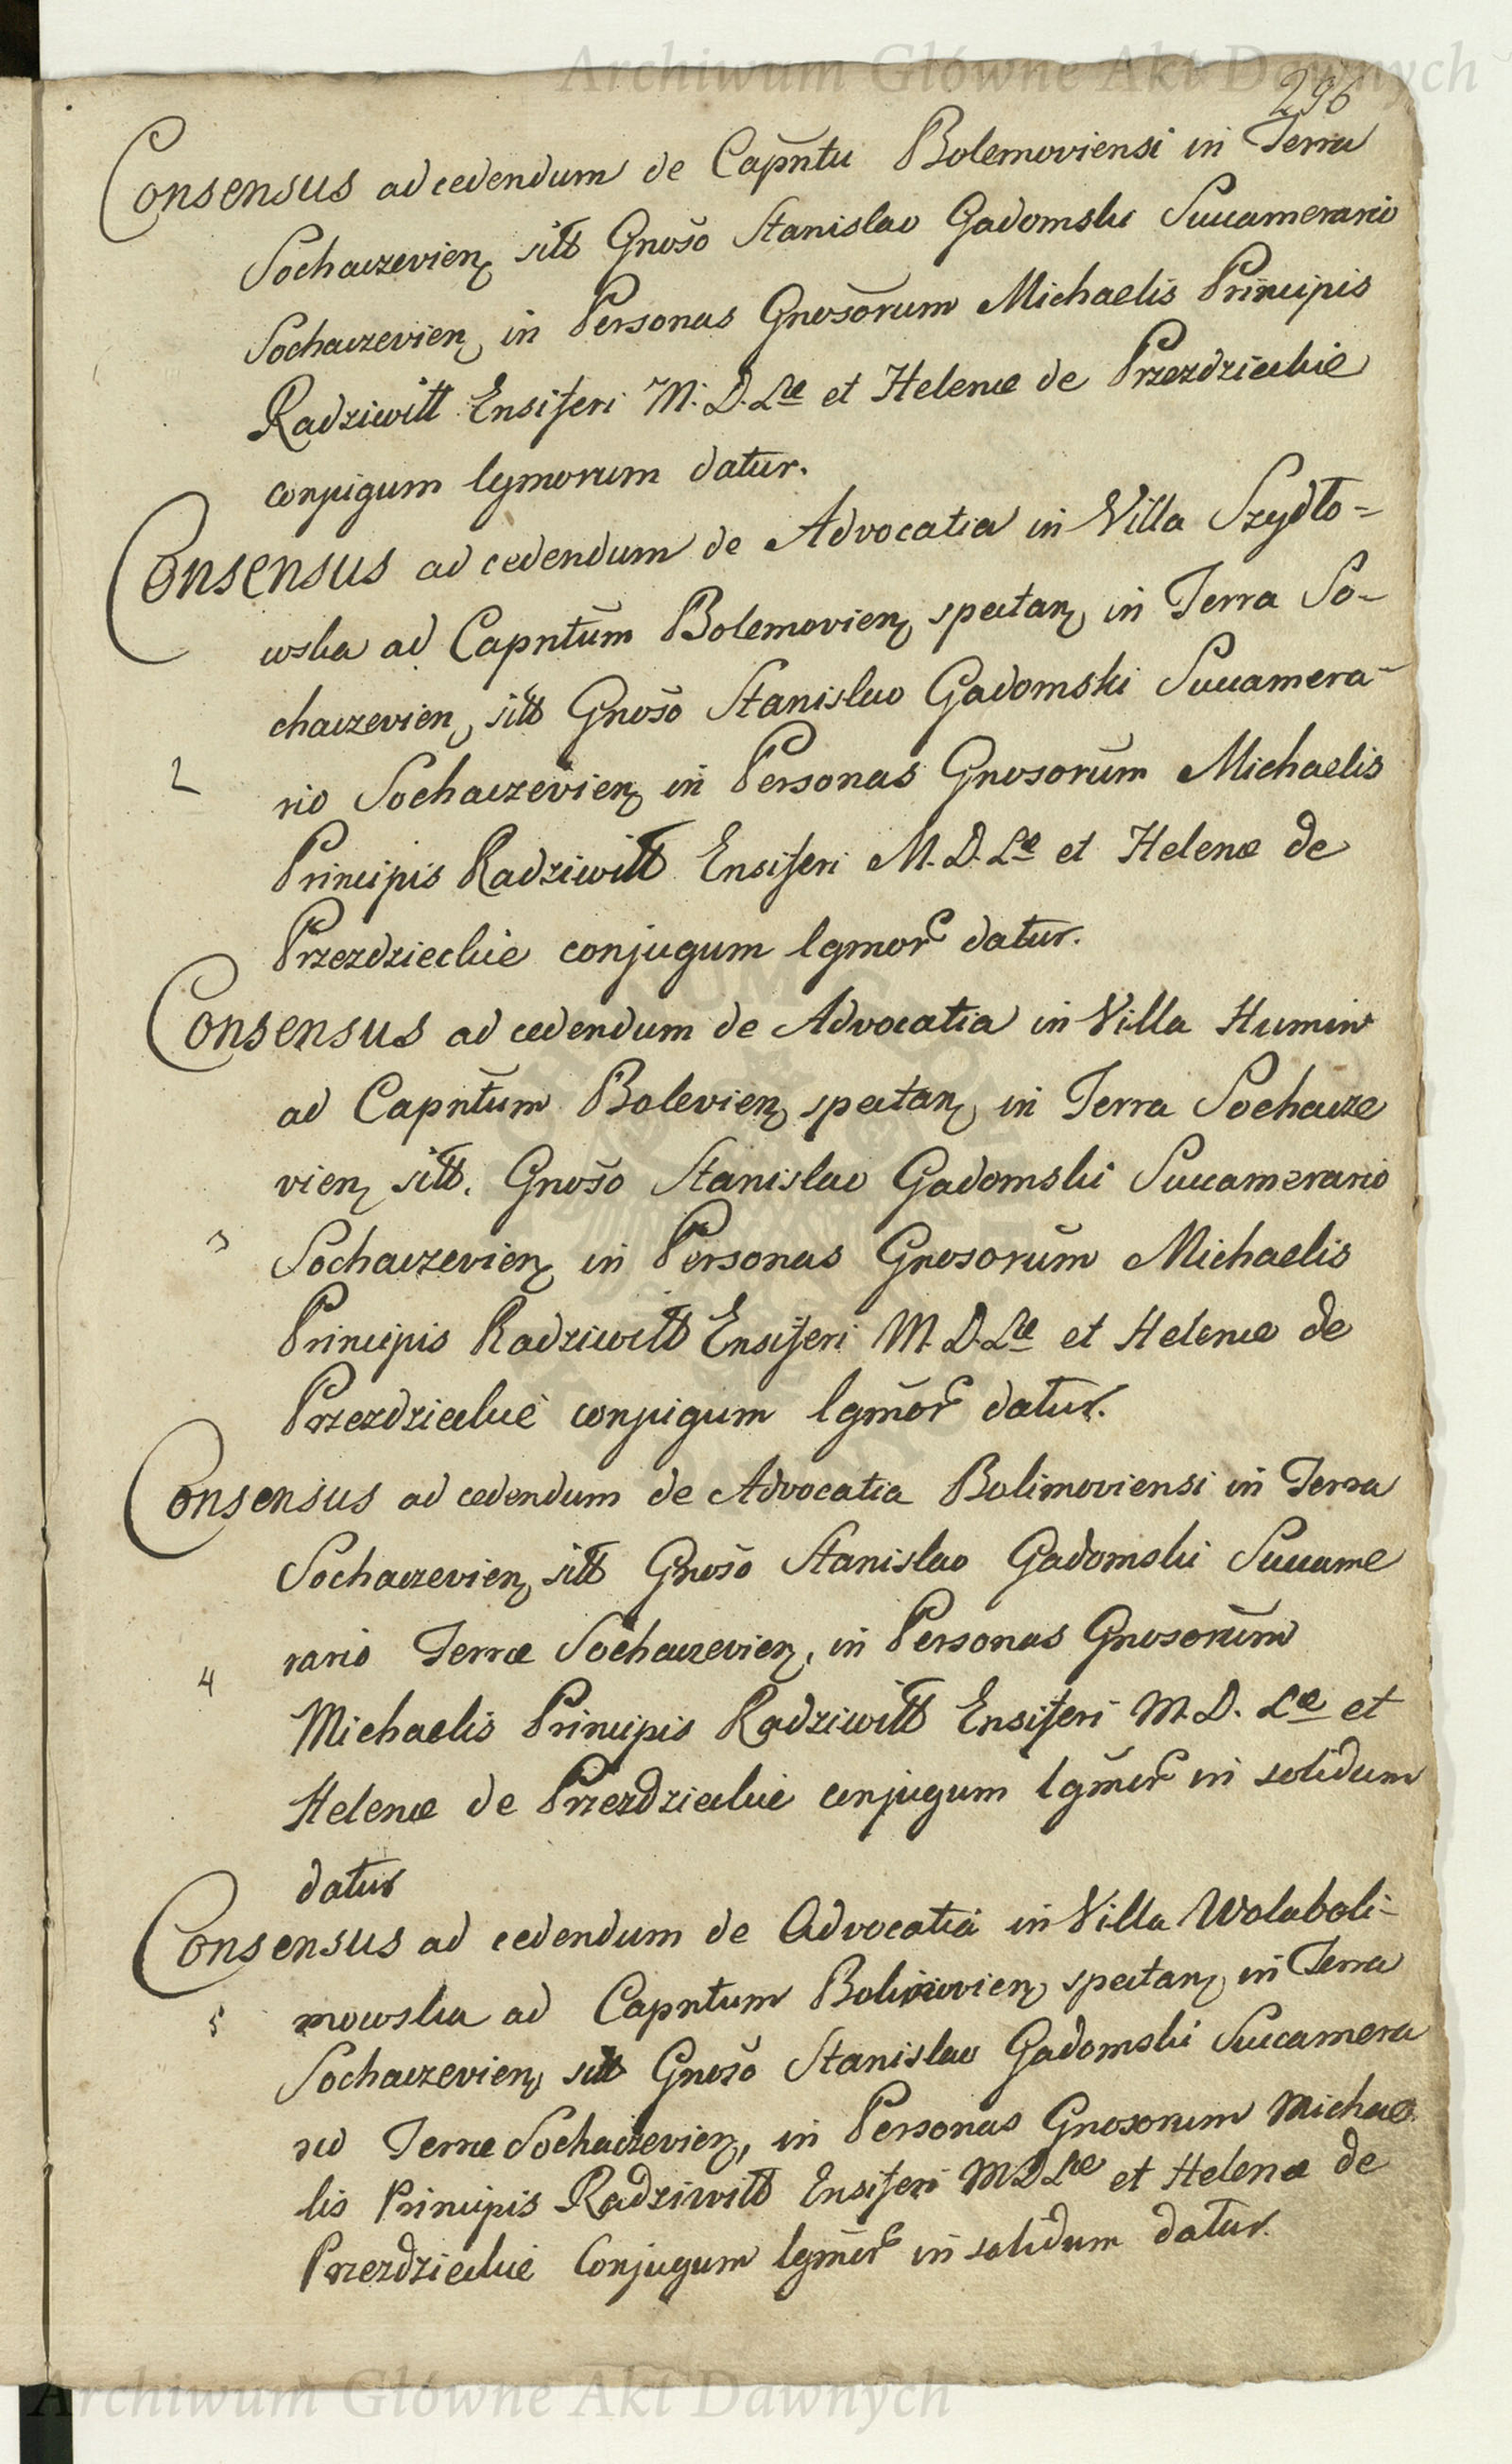 Archiwum Główne Akt Dawnych
296
Consensus ad cedendum de Capñtu Bolemoviensi in Terra
Sochaczevien, sitt Gnoso Stanislao Gadomski Succamerario
Sochaczevien, in Personas Gnosorum Michaelis Principis
Radziwiłł Ensiferi M. D. Læ et Helenæ de Przezdzieckie
conjugum lgmorum datur.
Consensus ad cedendum de Advocatia in Villa Szydło=
wska ad Capntum Bolemovien, spectan, in Terra So-
chaczevien, sitt Gnoso Stanislao Gadomski Succamera-
2
rio Sochaczevien, in Personas Gnosorum Michaelis
Principis Radziwiłł Ensiferi M. D. Læ et Helenæ de
Przezdzieckie conjugum lgmor datur.
Consensus ad cedendum de Advocatia in Villa Humin
ad Capntum Bolevien, spectan, in Terra Sochacze
vien, sitt. Gnoso Stanislao Gadomski Succamerario
3
Sochaczevien, in Personas Gnosorum Michaelis
Principis Radziwiłł Ensiferi M. D. Læ et Helenæ de
Przezdzieckie conjugum lgmor datur.
Consensus ad cedendum de Advocatia Bolimoviensi in Terra
Sochaczevien, sitt Gnoso Stanislao Gadomski Succame
rario Terræ Sochaczevien, in Personas Gnosorum
4
Michaelis Principis Radziwiłł Ensiferi M. D. Læ et
Helenæ de Przezdzieckie conjugum lgmor in solidum
datur
Consensus ad cedendum de Advocatia in Villa Wolaboli-
5
mowska ad Capntum Bolimovien, spectan, in Terra
Sochaczevien, sitt Gnoso Stanislao Gadomski Succamera
rio Terræ Sochaczevien, in Personas Gnosorum Michae
lis Principis Radziwiłł Ensiferi M D Læ et Helenæ de
Przezdzieckie Conjugum lgmor in solidum datur.
Archiwum Główne Akt Dawnych